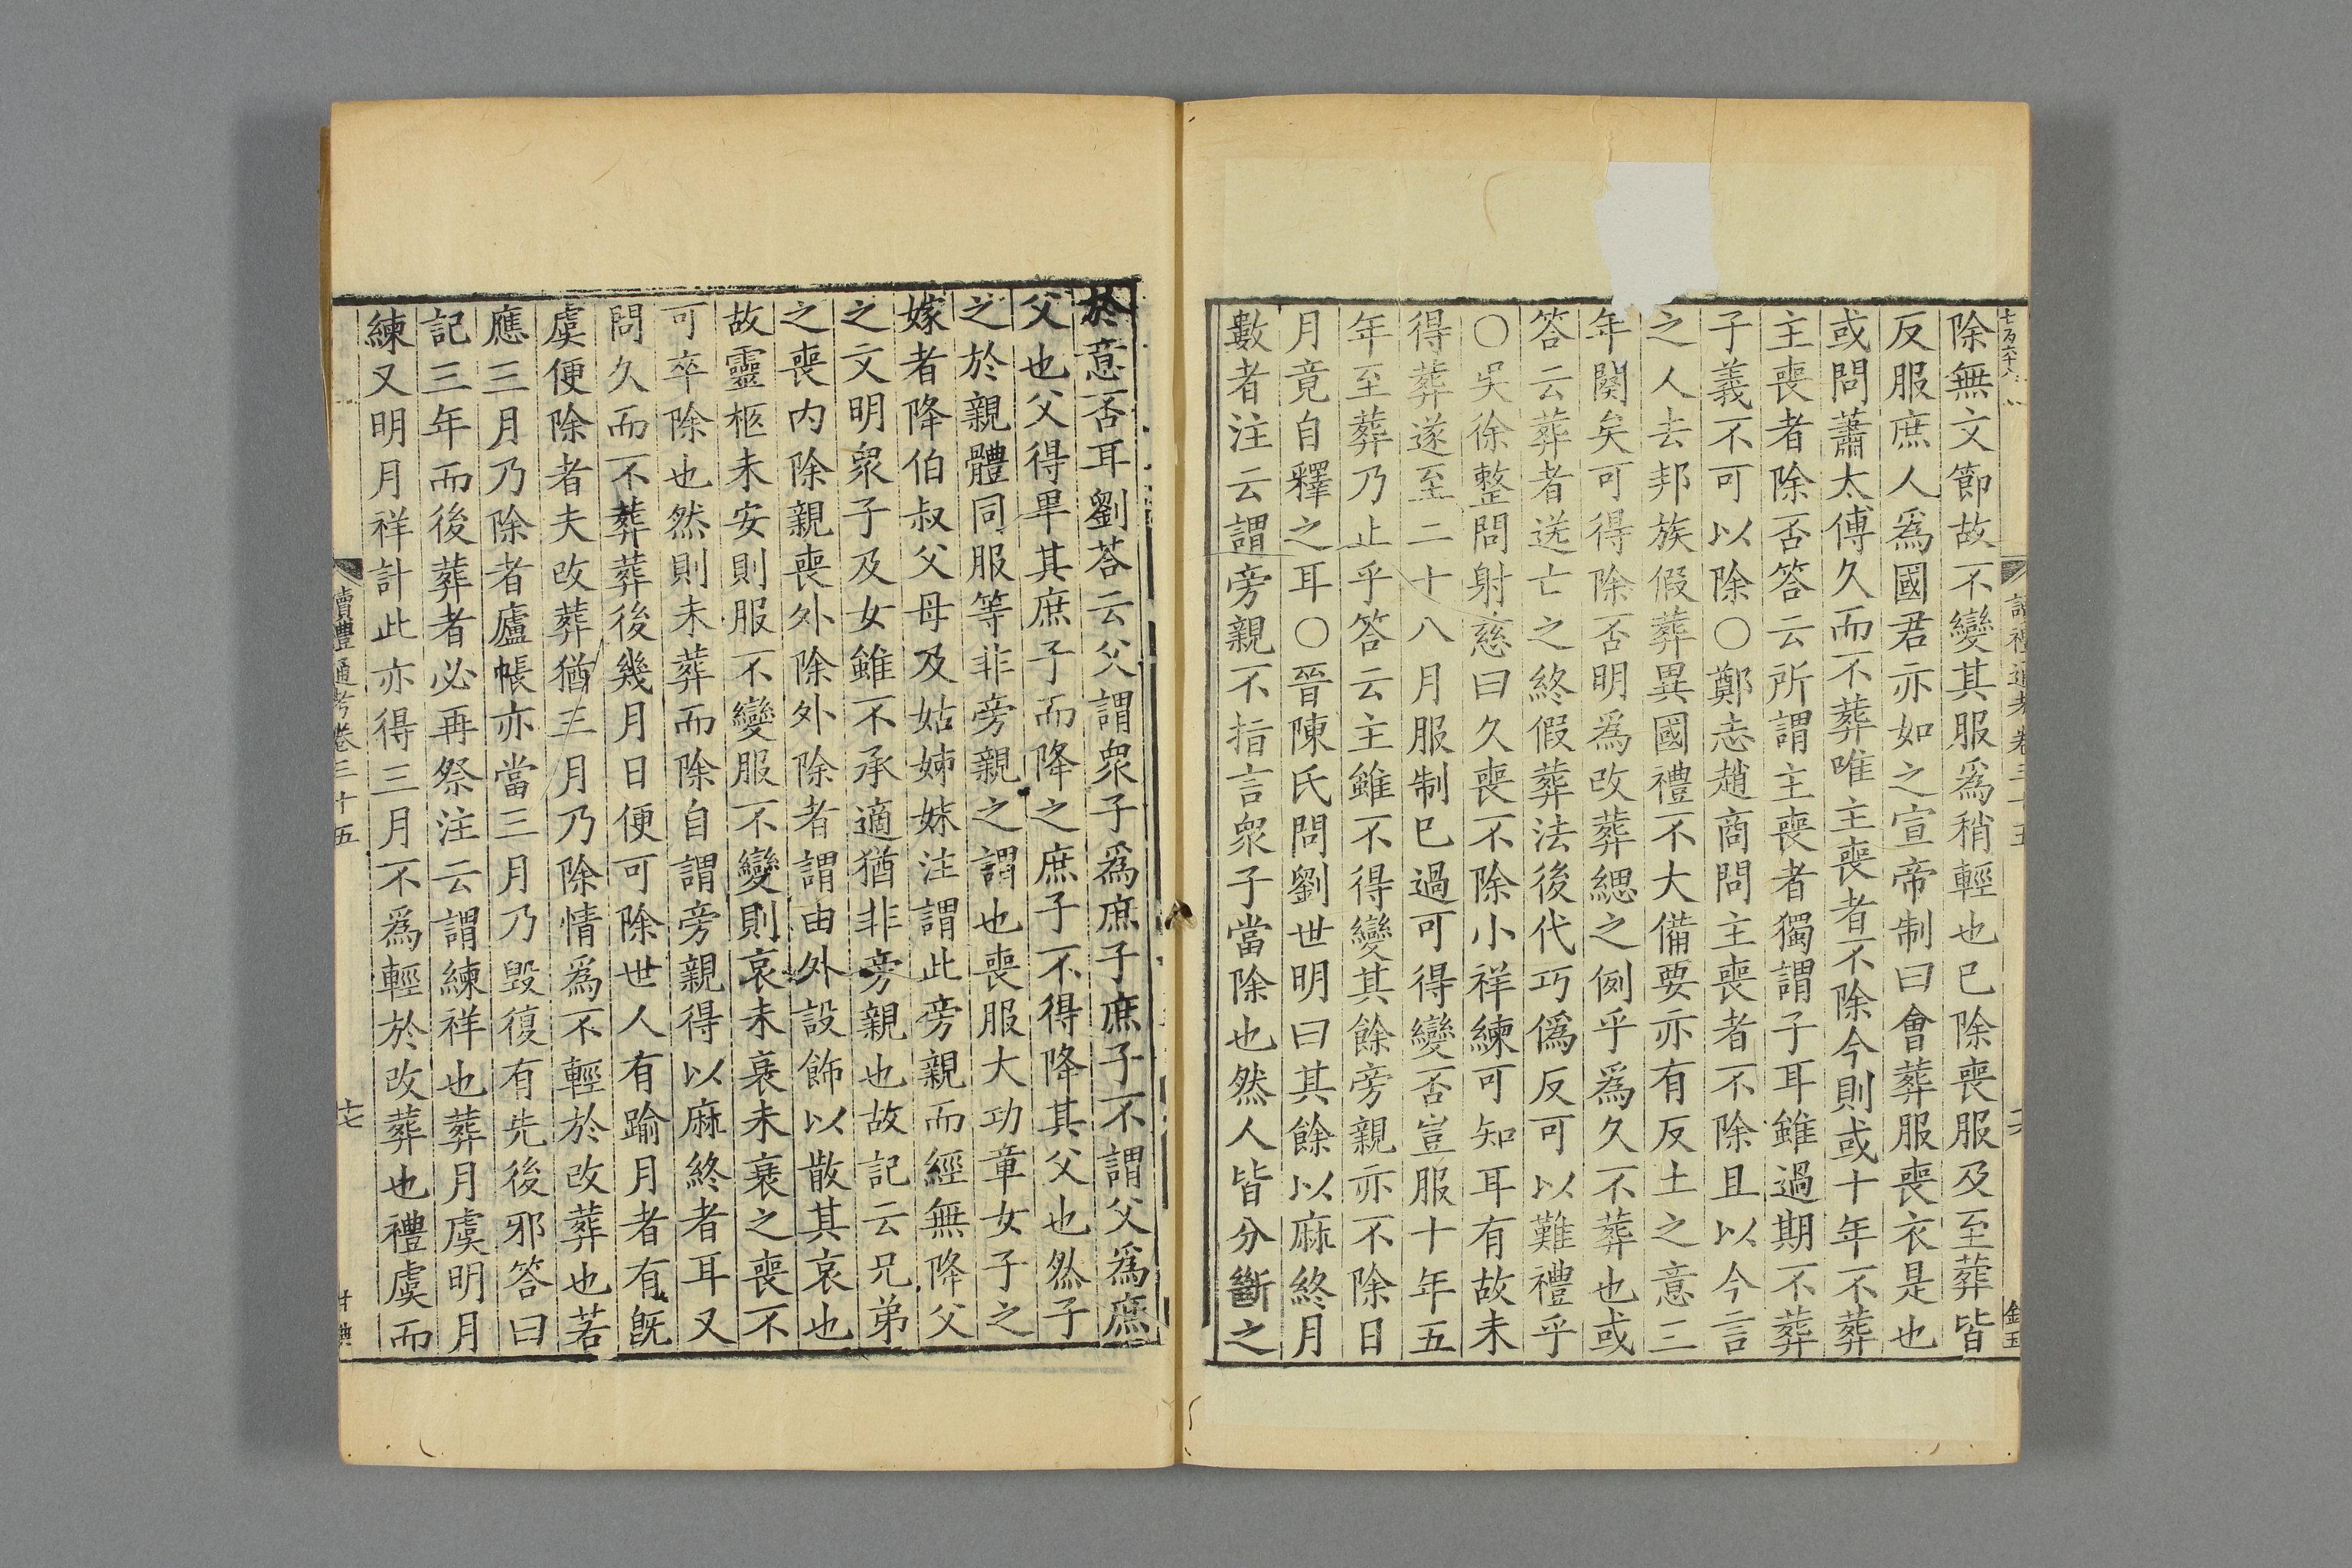 除無文節故不變其服爲稍輕也已除喪服及至葬皆
反服庶人爲國君亦如之宣帝制曰會葬服喪衣是也
或問蕭太傅久而不葬唯主喪者不除今則或十年不葬
主喪者除否答云所謂主喪者獨謂子耳雖過期不葬
子義不可以除○鄭志趙商問主喪者不除且以今言
之人去邦族假葬異國禮不大備要亦有反土之意三
年闋矣可得除否明爲改葬緦之例乎爲久不葬也或
答云葬者送亡之終假葬法後代巧僞反可以難禮乎
○吳徐整問射慈曰久喪不除小祥練可知耳有故未
得葬遂至二十八月服制已過可得變否豈服十年五
年至葬乃止乎答云主雖不得變其餘旁親亦不除日
月竟自釋之耳○晉陳氏問劉世明曰其餘以麻終月
數者注云謂旁親不指言衆子當除也然人皆分斷之
於意否耳劉荅云父謂衆子爲庶子庶子不謂父爲庶
父也父得畢其庶子而降之庶子不得降其父也然子
之於親體同服等非旁親之謂也喪服大功章女子之
嫁者降伯叔父母及姑姊妹注謂此旁親而經無降父
之文明衆子及女雖不承適猶非旁親也故記云兄弟
之喪内除親喪外除外除者謂由外設飾以散其哀也
故靈柩未安則服不變服不變則哀未衰未衰之喪不
可卒除也然則未葬而除自謂旁親得以麻終者耳又
問久而不葬葬後幾月日便可除世人有踰月者有旣
虞便除者夫改葬猶三月乃除情爲不輕於改葬也若
應三月乃除者廬帳亦當三月乃毀復有先後邪答曰
記三年而後葬者必再祭注云謂練祥也葬月虞明月
練又明月祥計此亦得三月不爲輕於改葬也禮虞而
讀禮通考卷三十五
十七